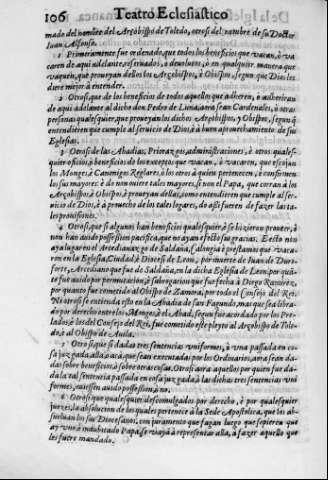 106 Teatro Eclesiastico
mado del nombre del Arçobispo de Toledo, otrosi del nombre de su Doctor
Iuan Alfonso.
1 Primeramente fue ordenado, que todos los beneficios que vacan, ò va
caren de aqui adelante, reseruados, ò deuolutos, ò en qualquier manera que
vaquen, que prouean dellos los Arçobispos, ò Obispos, segun que Dios les
diere mejor à entender.
2 Otrosi, que de los beneficios de todos aquellos que adhieren, ò adherieran
de aqui adelante al dicho don Pedro de Luna, aora sean Cardenales, ò otras
personas qualesquier, que prouean los dichos Arçobispos, y Obispos, segun q̃
entendieren que cumple al seruicio de Dios, è à buen aprouechamiento de sus
Eglesias.
3 Otrosi de las Abadias, Priorazgos, administraciones, è otros quales-
quier oficios, è beneficios de los exceptos que vacan, ò vacaren, que escojan
los Monges, è Canonigos Reglares, ò los otros à quien pertenecen, è confirmen
los sus mayores: è do non uiere tales mayores, fueron el Papa, que corran à los
Arçobispos, è Obispos, è prouean dellas, como entendieren que cumple al ser-
uicio de Dios, è à prouecho de los tales logares, do assi fueren de fazer las ta-
les prouisiones.
4 Otrosi, que si algunos han beneficios qualesquier, è se hizieron prouer, è
non han auido possession pacifica, que no ayan efecto sus gracias. E esto non
aya lugar en el Arcedianazgo de Saldaña, è calongia è prestamos que vaca-
ron en la Eglesia, Ciudad, è Diocesi de Leon, por muerte de Iuan de Duro-
forte, Arcediano que fue de Saldaña, en la dicha Eglesia de Leon, por quan-
to fue auido por permutacion, è subrogacion que fue fecha à Diego Ramirez,
por quanto fue cometido al Obispo de Zamora, por todo el Consejo del Rey.
Ni otrosi se entienda esto en la Abadia de San Fagundo, mas que sea libra-
do por derecho entre los Monges, è el Abad, segun fue acordado por los Pre-
lados, è los del Consejo del Rey, fue cometido este pleyto al Arçobispo de Tole-
do, è al Obispo de Auila.
5 Otrosi, que si dadas tres sentencias vniformes, è vna passada en co-
sa juzgada, alla, o acà, que sean executadas por los Ordinarios, aora sean da-
das sobre beneficios, è sobre otras cosas. Otrosi aora aquellos por quien fue da-
da la tal sentencia passada en cosa juzgada, è las dichas tres sentencias vni
formes, ouiessen auido possession, ò no.
6 Otrosi que qualesquier descomulgados por derecho, è por qualesquier
juezes, la absolucion de los quales pertenece à la Sede Apostolica, que los ab-
sueluan los sus Diocesanos, con juramento que fagan luego que sepieren que
ay vno è indubitado Papa, se vaya à representar alla, à fazer aquello que
les fuere mandado.